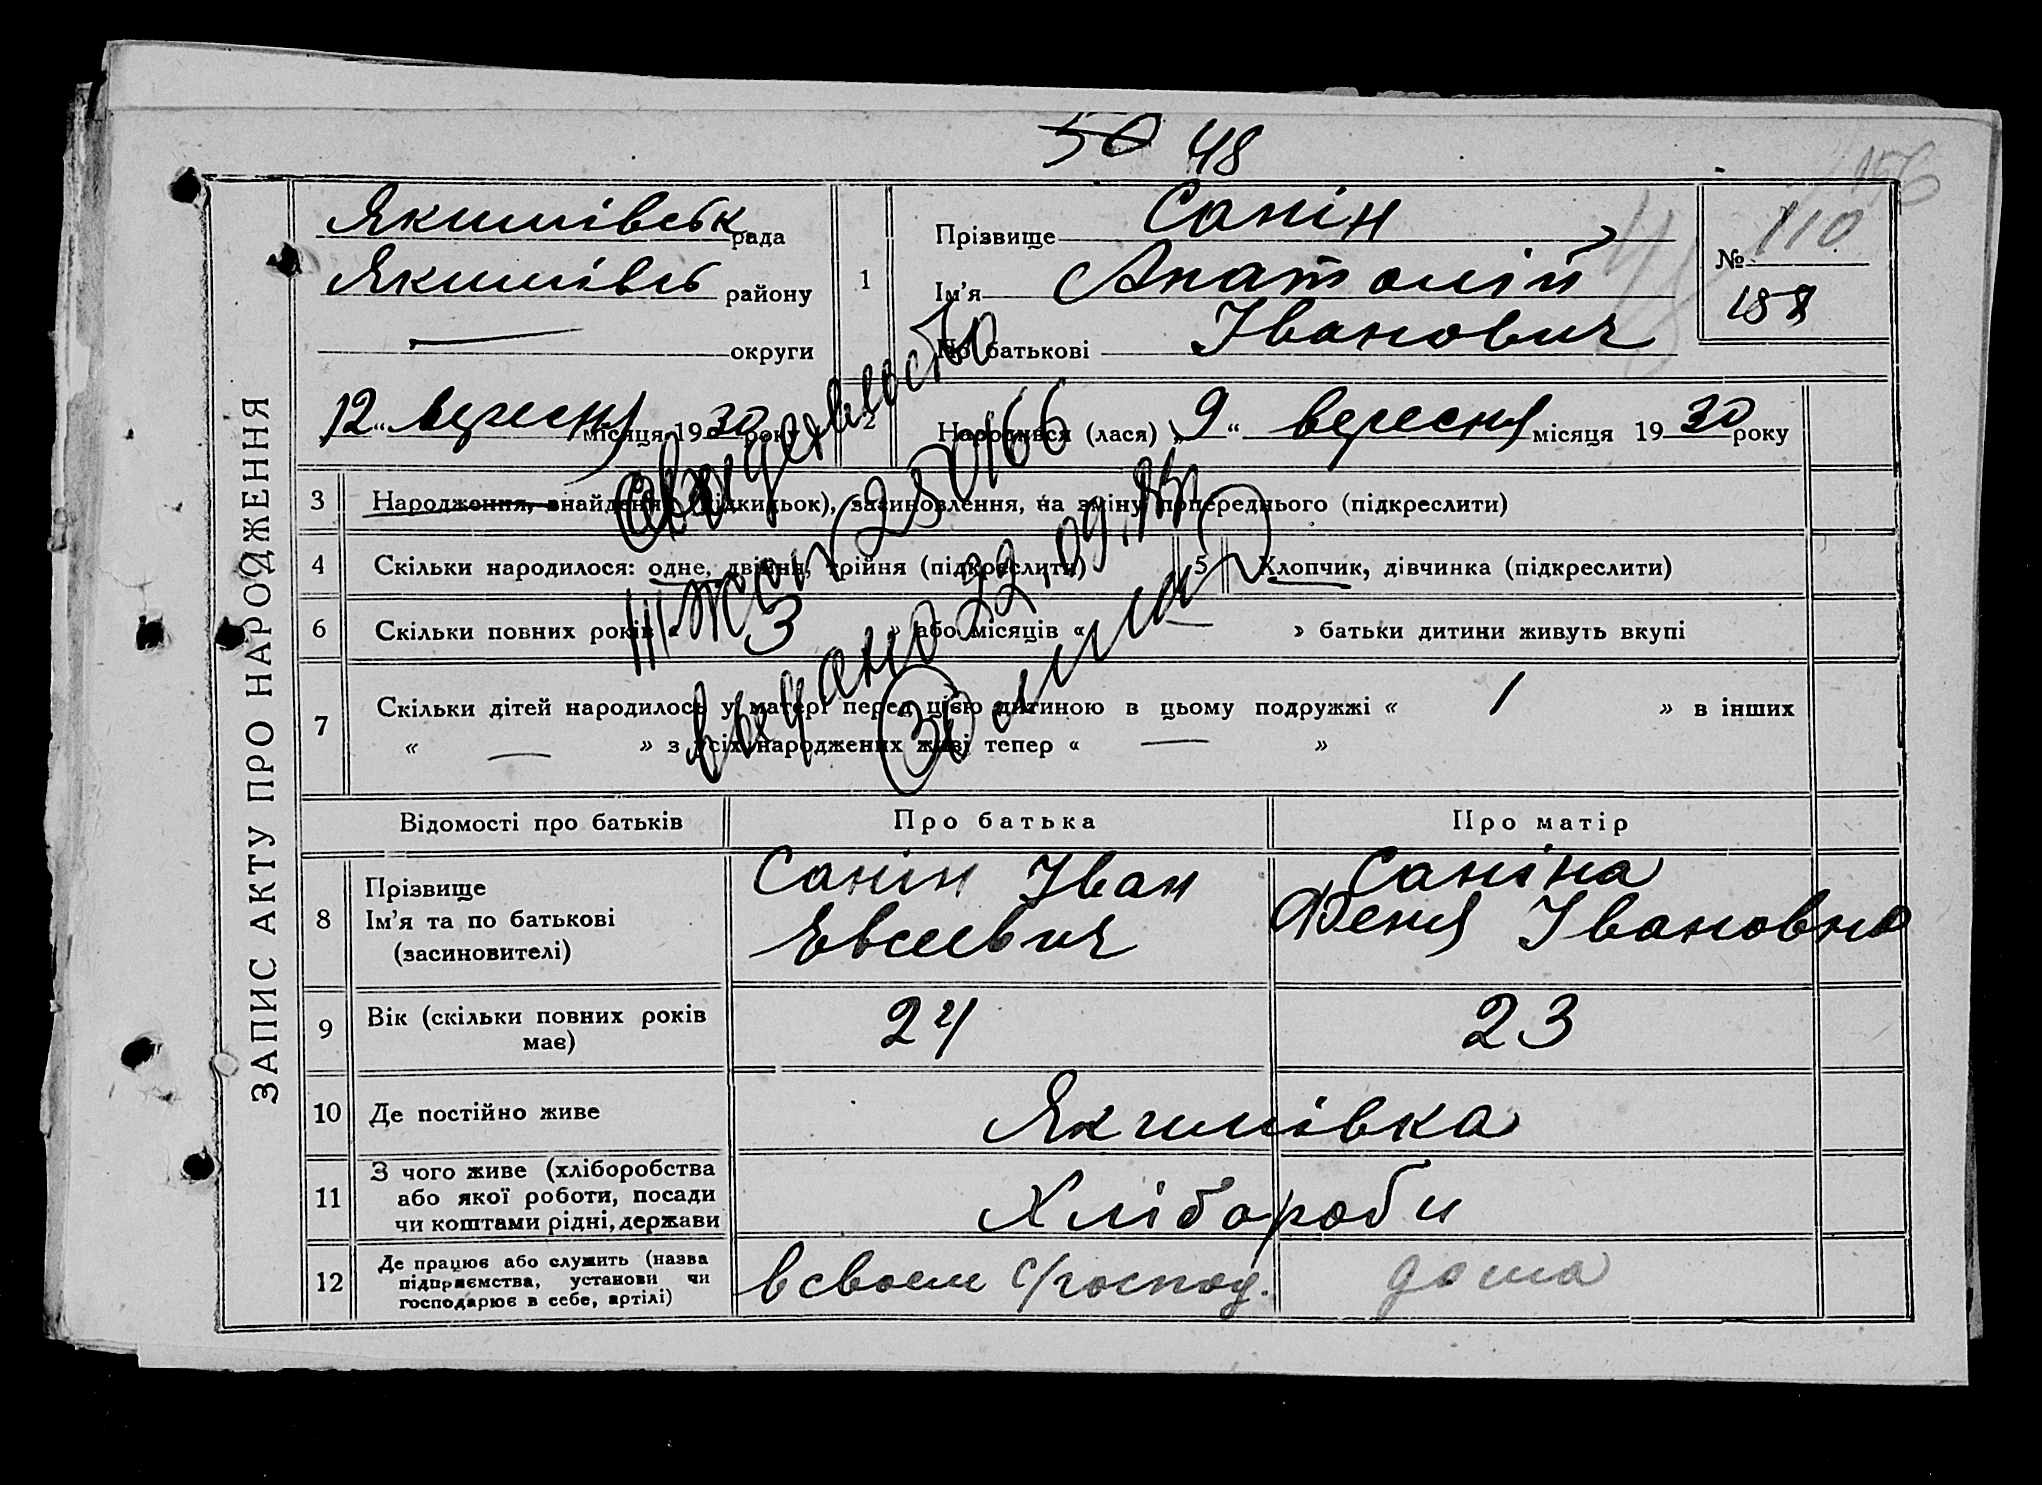 50 48
156
ЗАПИС АКТУ ПРО НАРОДЖЕННЯ
Якимівськ рада
Якимівсь району
округи
1 Прізвище Санін
Ім’я Анатолій
По батькові Іванович
№ 110
188
48
12 “ вересня місяця 1930 року
2 Народився (лася) „ 9 “ вересня місяця 1930 року
3 Народження, знайдення (підкидьок), засиновлення, на зміну попереднього (підкреслити)
4 Скільки народилося: одне, двійня, трійня (підкреслити)
5 Хлопчик, дівчинка (підкреслити)
6 Скільки повних років « 3 » або місяців « — » батьки дитини живуть вкупі
7 Скільки дітей народилось у матері перед цією дитиною в цьому подружжі « 1 » в інших
« — » з усіх народжених живі тепер « — »
Свидетельство
250166
выдано 22.09.
Відомості про батьків Про батька Про матір
8 Прізвище
Ім’я та по батькові
(засиновителі)
Санін Іван
Евсеевич
Саніна
Феня Івановна
9 Вік (скільки повних років
має)
24 23
10 Де постійно живе Якимівка
11 З чого живе (хліборобства
або якої роботи, посади
чи коштами рідні, держави
Хлібороби
12 Де працює або служить (назва
підприємства, установи чи
господарює в себе, артілі)
в своем с/господ. дома